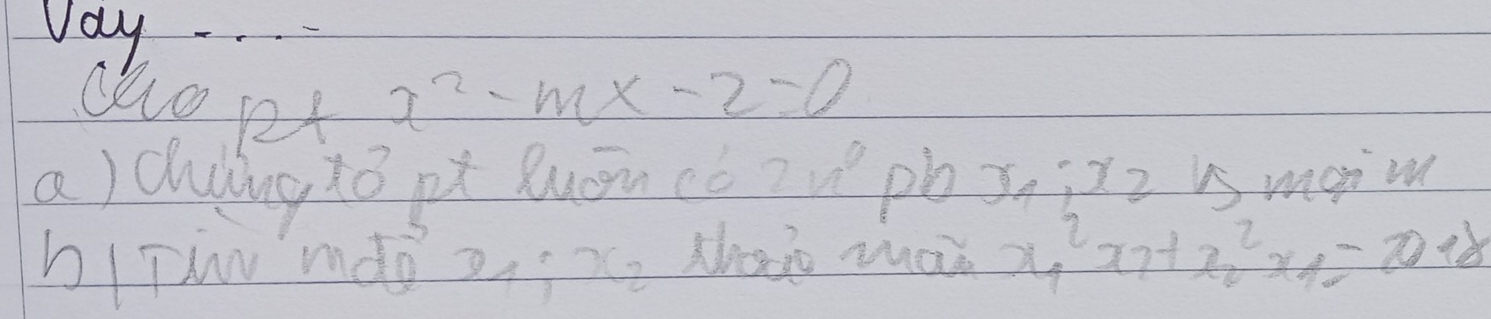 Vậy ....
Cho pt x² - mx - 2 = 0
a) Chứng tỏ pt luôn có 2 n⁰ pb x₁ ; x₂ vs mọi m
b) Tìm m để x₁ ; x₂ thoả mãn x₁² x₂ + x₂² x₁ = 2018